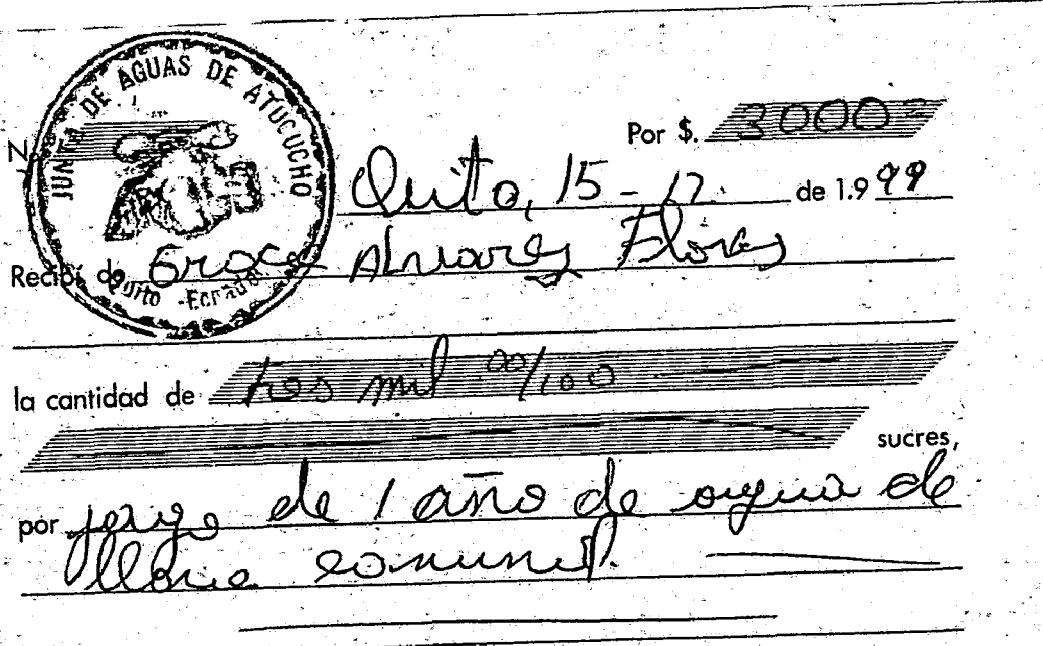 JUNTA DE AGUAS DE ATUCUCHO
Quito - Ecuador
Por $. 3000=
Quito, 15-12. de 1.999
Recibí de Alvarez Flores
la cantidad de tres mil 00/100
sucres,
por pago de 1 año de agua de
llave comunal.